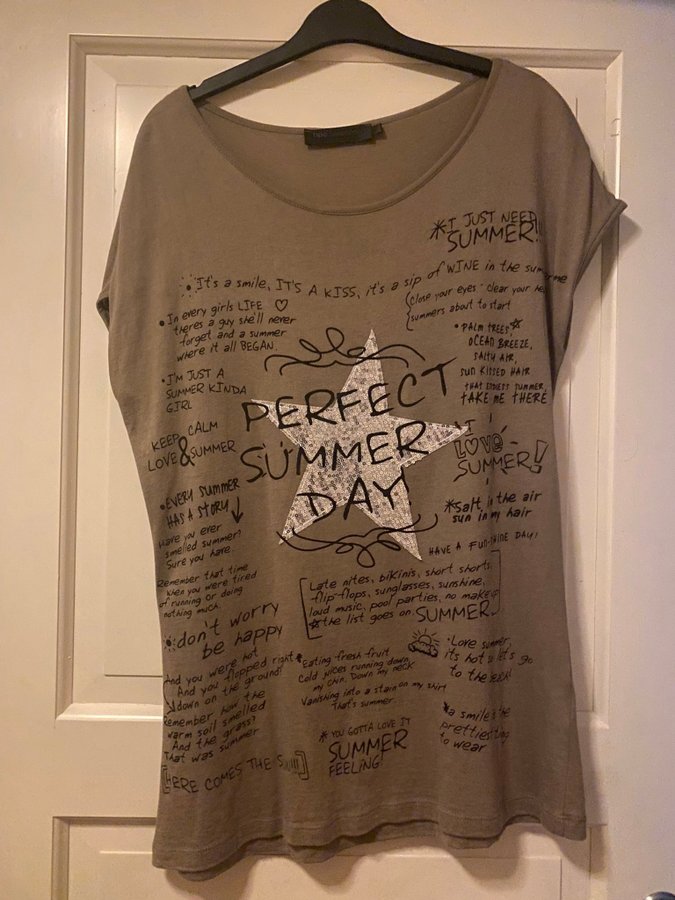 *I JUST NEED
SUMMER!!
It's a smile, IT'S A KISS, it's a sip of WINE in the summertime
Close your eyes - clear your
summers about to start
• In every girls LIFE ♡
theres a guy she'll never
forget and a summer
where it all BEGAN.
• I'M JUST A
SUMMER KINDA
GIRL
KEEP CALM
& LOVE SUMMER
• EVERY SUMMER
HAS A STORY ↓
Have you ever
smelled summer?
Sure you have.
Remember that time
when you were tired
of running or doing
nothing much.
don't worry
be happy
And you were hot
And you flopped right
down on the ground!
Remember how the
warm soil smelled
And the grass?
That was summer
[HERE COMES THE
PERFECT
SUMMER
DAY
• PALM TREES☆
OCEAN BREEZE,
SALTY AIR,
SUN KISSED HAIR
THAT ENDLESS SUMMER,
TAKE ME THERE
I
LOVE
SUMMER!
*Salt in the air
sun in my hair
HAVE A FUN-SHINE DAY!
Late nites, bikinis, short shorts,
flip-flops, sunglasses, sunshine,
loud music, pool parties, no makeup
☆the list goes on SUMMER.
Eating fresh fruit
Cold juices running down
my chin. Down my neck
Vanishing into a stain on my shirt
That's summer
*YOU GOTTA LOVE IT
SUMMER
FEELING!
• Love summer,
its hot let's go
to the beach!
*a smile's the
prettiest thing
to wear